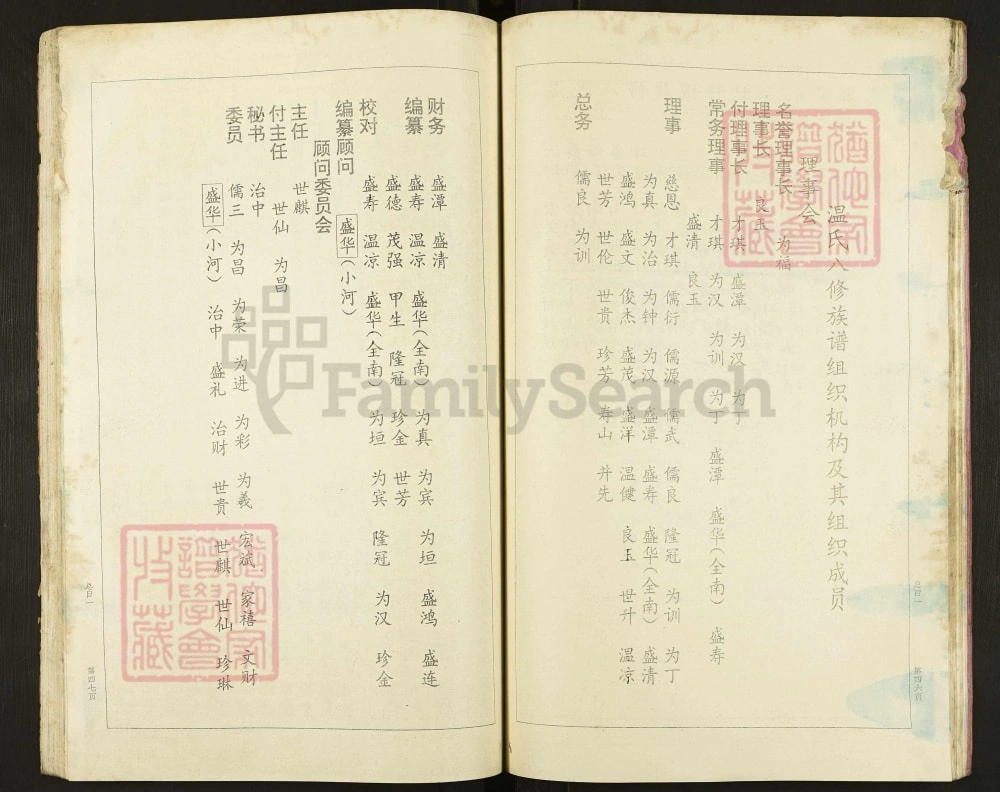 温氏八修族谱组织机构及其组织成员
理事会
名誉理事长 为福
理事长 良玉
付理事长 才琪 盛潭 为汉 为丁
常务理事 才琪 为汉 为训 为丁 盛潭 盛华(全南) 盛寿
盛清 良玉
理事 慈恩 才琪 儒衍 儒源 儒武 儒良 隆冠 为训 为丁
为真 为治 为钟 为汉 盛潭 盛寿 盛华(全南) 盛清
盛鸿 盛文 俊杰 盛茂 盛洋 温健 良玉 世升 温凉
世芳 世伦 世贵 珍芳 寿山 并先
总务 儒良 为训
第四六页
财务 盛潭 盛清
编纂 盛寿 温凉 盛华(全南) 为真 为宾 为垣 盛鸿 盛连
盛德 茂强 甲生 隆冠 珍金 世芳
校对 盛寿 温凉 盛华(全南) 为垣 为宾 隆冠 为汉 珍金
编纂顾问 盛华(小河)
顾问委员会
主任 世麒
付主任 世仙 为昌
秘书 治中
委员 儒三 为昌 为荣 为进 为彩 为羲 宏斌 家禧 文财
盛华(小河) 治中 盛礼 治财 世贵 世麒 世仙 珍琳
第四七页
FamilySearch